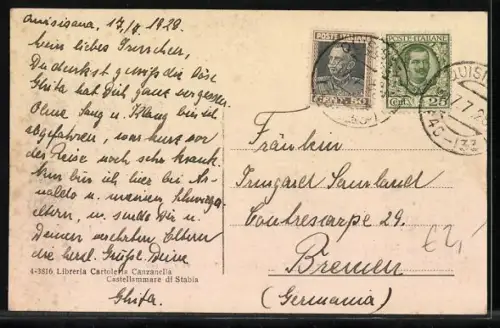 Quisisana, 17/7. 1929.
Mein liebes Irmchen,
Du denkst gewiß die böse
Ghita hat Dich ganz vergessen.
Ohne Sang u. Klang bin ich
abgefahren, war kurz vor
der Reise noch sehr krank.
Nun bin ich hier bei Ar-
naldo u. meinen Schwieger-
eltern, u. sende Dir u.
Deinen verehrten Eltern
die herzl. Grüße Deine
Ghita.
4-3816 Libreria Cartoleria Canzanella
Castellammare di Stabia
POSTE ITALIANE
CENT. 50
POSTE ITALIANE
CENT. 25
QUISI
Fräulein
Irmgard Saurland
Contrescarpe 29.
Bremen
(Germania)